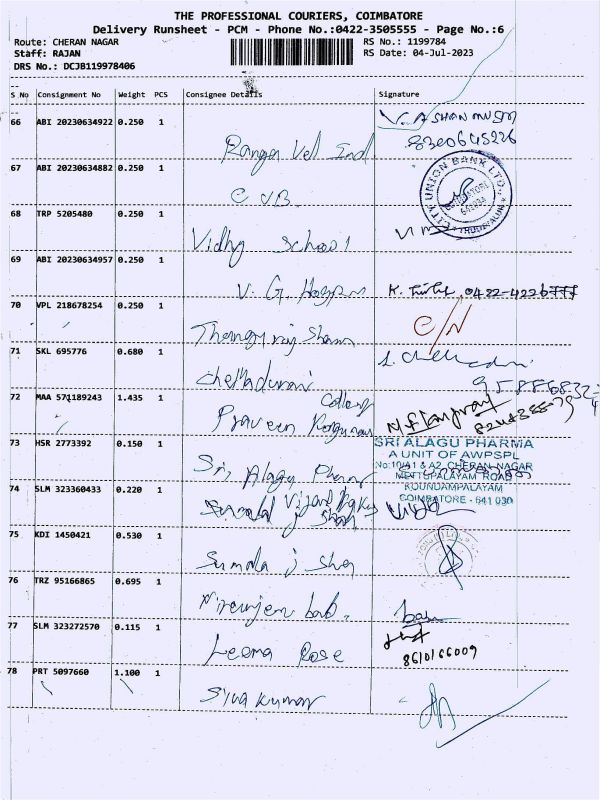 THE PROFESSIONAL COURIERS, COIMBATORE
Delivery Runsheet - PCM - Phone No.:0422-3505555 - Page No.:6
Route: CHERAN NAGAR RS No.: 1199784
Staff: RAJAN RS Date: 04-Jul-2023
DRS No.: DCJB119978406
S No Consignment No Weight PCS Consignee Details Signature
66 ABI 20230634922 0.250 1
V. A SHANMUGM
8300645226
Ranga Vel Ind
67 ABI 20230634882 0.250 1
C U B.
CITY UNION BANK LTD.
COIMBATORE
641034
THUDIYALUR
68 TRP 5205480 0.250 1
Vidhy School
69 ABI 20230634957 0.250 1
V. G. Hospm
K. 0422-4226777
70 VPL 218678254 0.250 1
C/N
Sham
71 SKL 695776 0.680 1
chelladurai
72 MAA 571189243 1.435 1
College
Praveen
73 HSR 2773392 0.150 1
Sri Alagu Pharm
SRI ALAGU PHARMA
A UNIT OF AWPSPL
No:10/A1 & A2, CHERAN NAGAR
METTUPALAYAM ROAD
KOUNDAMPALAYAM
COIMBATORE - 641 030
74 SLM 323360433 0.220 1
75 KDI 1450421 0.530 1
Sumala j Sha
76 TRZ 95166865 0.695 1
Niranjan bab.
77 SLM 323272570 0.115 1
Leema Rose
8610166009
78 PRT 5097660 1.100 1
Siva kumar